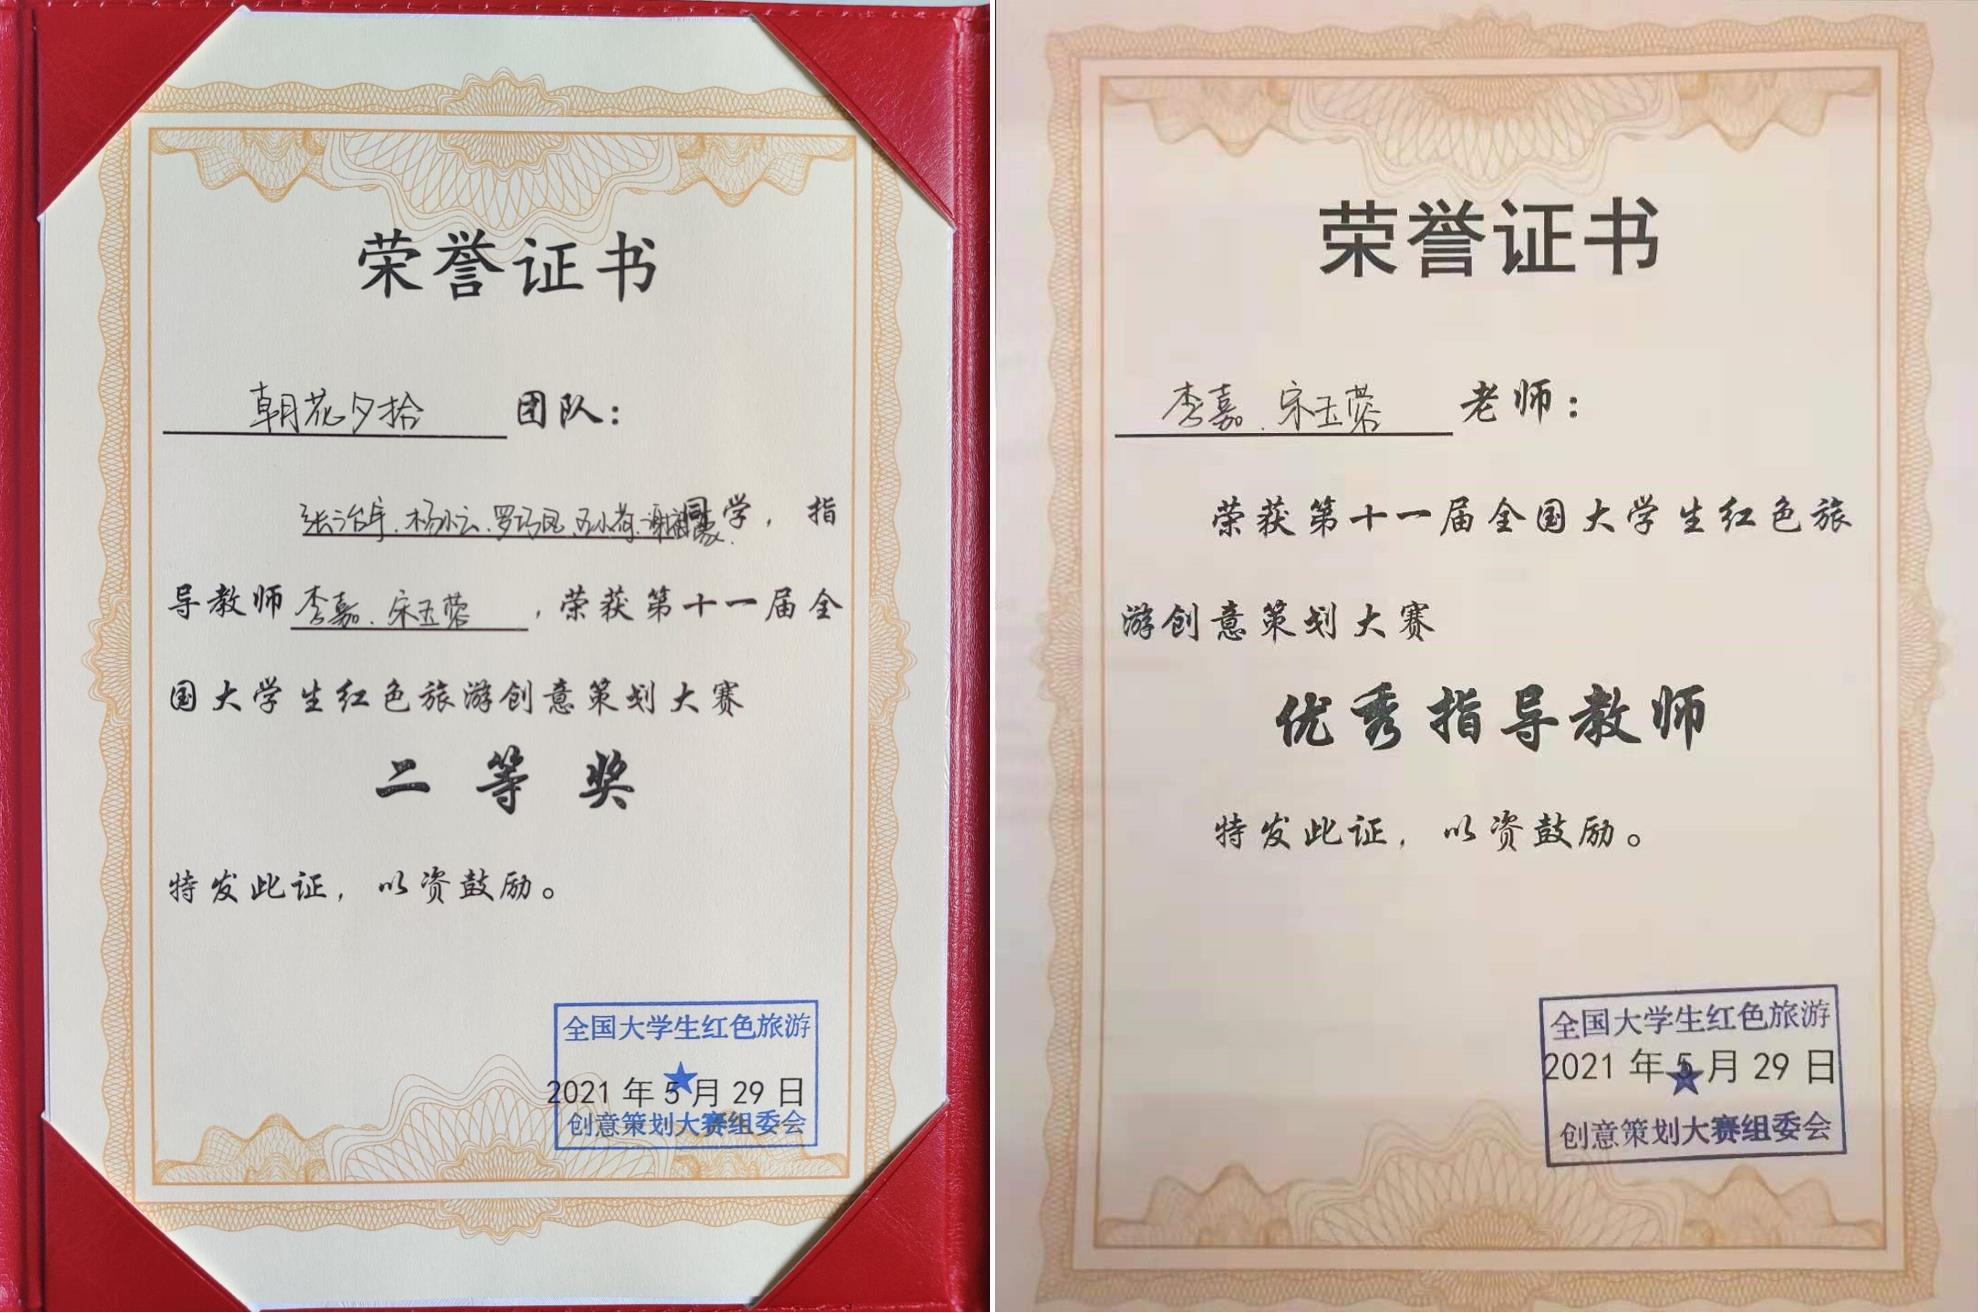 荣誉证书
朝花夕拾 团队：
张治年、杨小云、罗巧凤、 同学，指
导教师 李嘉、宋玉蓉 ，荣获第十一届全
国大学生红色旅游创意策划大赛
二等奖
特发此证，以资鼓励。
全国大学生红色旅游
2021年5月29日
创意策划大赛组委会
荣誉证书
李嘉、宋玉蓉 老师：
荣获第十一届全国大学生红色旅
游创意策划大赛
优秀指导教师
特发此证，以资鼓励。
全国大学生红色旅游
2021年5月29日
创意策划大赛组委会